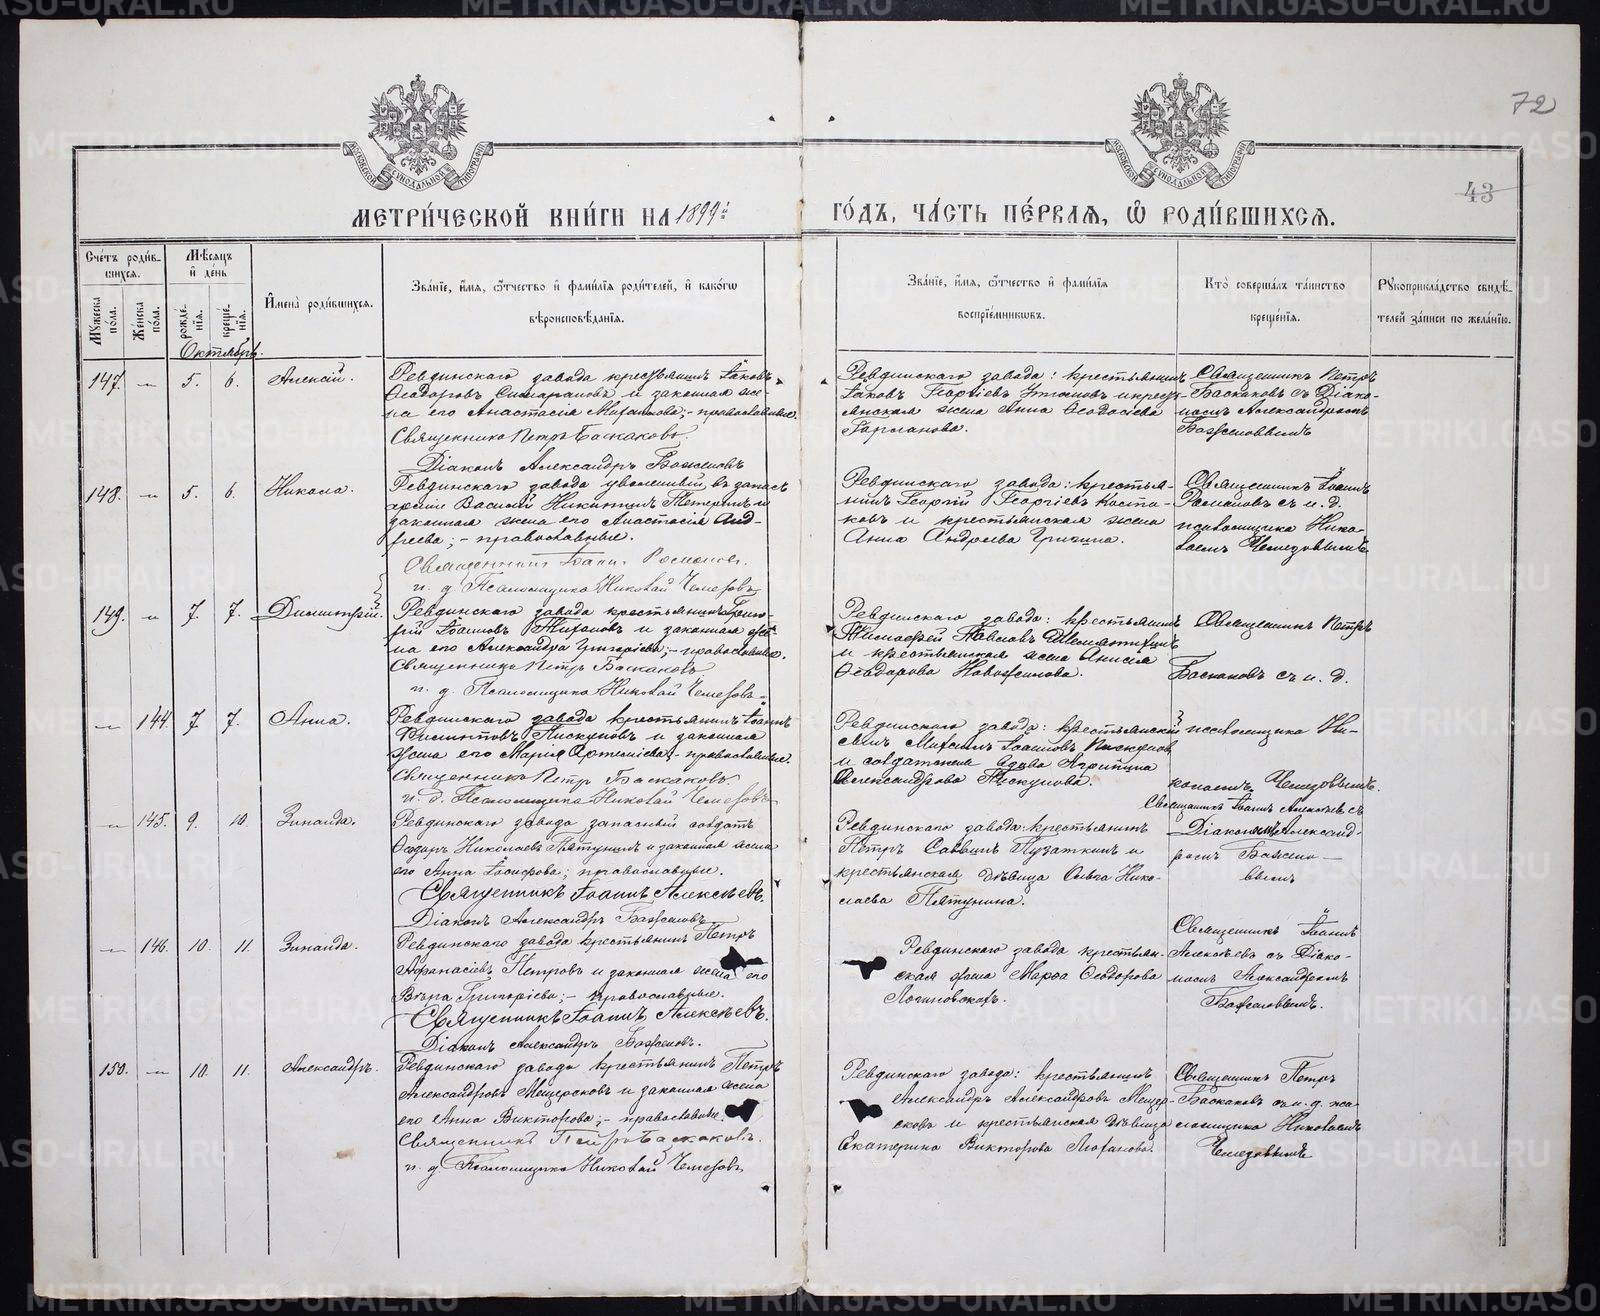 72
43
МЕТРИ́ЧЕСКОЙ КНИ́ГИ НА 1899й
ГО́ДЪ, ЧА́СТЬ ПЕ́РВАЯ, Ѡ РОДИ́ВШИХСЯ.
Сче́тъ роди́в-
шихся.
Му́жеска по́ла.
Же́нска по́ла.
Мѣ́сяцъ и҆ де́нь
рожде́-нїя.
креще́-нїя.
И҆мена̀ роди́вшихся.
Зва́нїе, и҆́мя, ѻ҆́тчество и҆ фами́лїя роди́телей, и҆ како́гѡ
вѣроисповѣ́данїя.
Зва́нїе, и҆́мя, ѻ҆́тчество и҆ фами́лїя
воспрїе́мникѡвъ.
Кто̀ соверша́лъ та́инство
креще́нїя.
Рꙋкоприкла́дство свидѣ́-
телей за́писи по жела́нїю.
Октябрь.
147. — 5. 6. Алексій.
Ревдинскаго завода крестьянинъ Іаковъ
Ѳеодоровъ и законная же-
на его Анастасія; - православные.
Священникъ Петръ Баскаковъ.
Діаконъ Александръ Баженовъ
Ревдинскаго завода: крестьянинъ
Іаковъ Георгіевъ и кресть-
янская жена Анна Ѳеодосіева
Священникъ Петръ
Баскаковъ съ Діако-
номъ Александромъ
Баженовымъ
148. — 5. 6. Никола.
Ревдинскаго завода уволенный въ запасъ
арміи Василій Никитинъ и
законная жена его Анастасія Анд-
реева; - православные.
Священникъ Іоаннъ Романовъ.
и. д. Псаломщика Николай Чемезовъ
Ревдинскаго завода: крестья-
нинъ Георгій Георгіевъ
и крестьянская жена
Анна Андреева
Священникъ Іоаннъ
Романовъ съ и. д.
псаломщика Нико-
лаемъ Чемезовымъ
149. — 7. 7. Димитрій.
Ревдинскаго завода крестьянинъ Григо-
рій Іоанновъ и законная же-
на его Александра Григоріева; - православные.
Священникъ Петръ Баскаковъ
и. д. Псаломщика Николай Чемезовъ
Ревдинскаго завода: крестьянинъ
Павловъ
и крестьянская жена Анисія
Ѳеодорова Новожилова.
Священникъ Петръ
Баскаковъ съ и. д.
— 144. 7. 7. Анна.
Ревдинскаго завода крестьянинъ Іоаннъ
Пискуновъ и законная
жена его Марія Артеміева; - православные.
Священникъ Петръ Баскаковъ
и. д. Псаломщика Николай Чемезовъ
Ревдинскаго завода: крестьянскій
сынъ Михаилъ Іоанновъ Пискуновъ
и солдатская вдова Агрипина
Александрова Пискунова.
псаломщика Ни-
колаемъ Чемезовымъ.
— 145. 9. 10. Зинаида.
Ревдинскаго завода запасный солдатъ
Ѳеодоръ Николаевъ Пятунинъ и законная жена
его Анна Іосифова; православные.
Священникъ Іоаннъ Алексѣевъ.
Діаконъ Александръ Баженовъ
Ревдинскаго завода: крестьянинъ
Петръ Саввинъ Пузаткинъ и
крестьянская дѣвица Ольга Нико-
лаева Пятунина.
Священникъ Іоаннъ Алексѣевъ съ
Діакономъ Александ-
ромъ Бажено-
вымъ
— 146. 10. 11. Зинаида.
Ревдинскаго завода крестьянинъ Петръ
Афанасіевъ Петровъ и законная жена его
Вѣра Григоріева; - православные.
Священникъ Іоаннъ Алексѣевъ.
Діаконъ Александръ Баженовъ.
Ревдинскаго завода крестьян-
ская жена Марфа Ѳеодорова
Логиновскихъ.
Священникъ Іоаннъ
Алексѣевъ съ Діако-
номъ Александромъ
Баженовымъ.
150. — 10. 11. Александръ.
Ревдинскаго завода крестьянинъ Петръ
Александровъ Мещерсковъ и законная жена
его Анна Викторова; - православные.
Священникъ Петръ Баскаковъ.
и. д. Псаломщика Николай Чемезовъ
Ревдинскаго завода: крестьянинъ
Александръ Александровъ Мещер-
сковъ и крестьянская дѣвица
Екатерина Викторова
Священникъ Петръ
Баскаковъ съ и. д. пса-
ломщика Николаемъ
Чемезовымъ